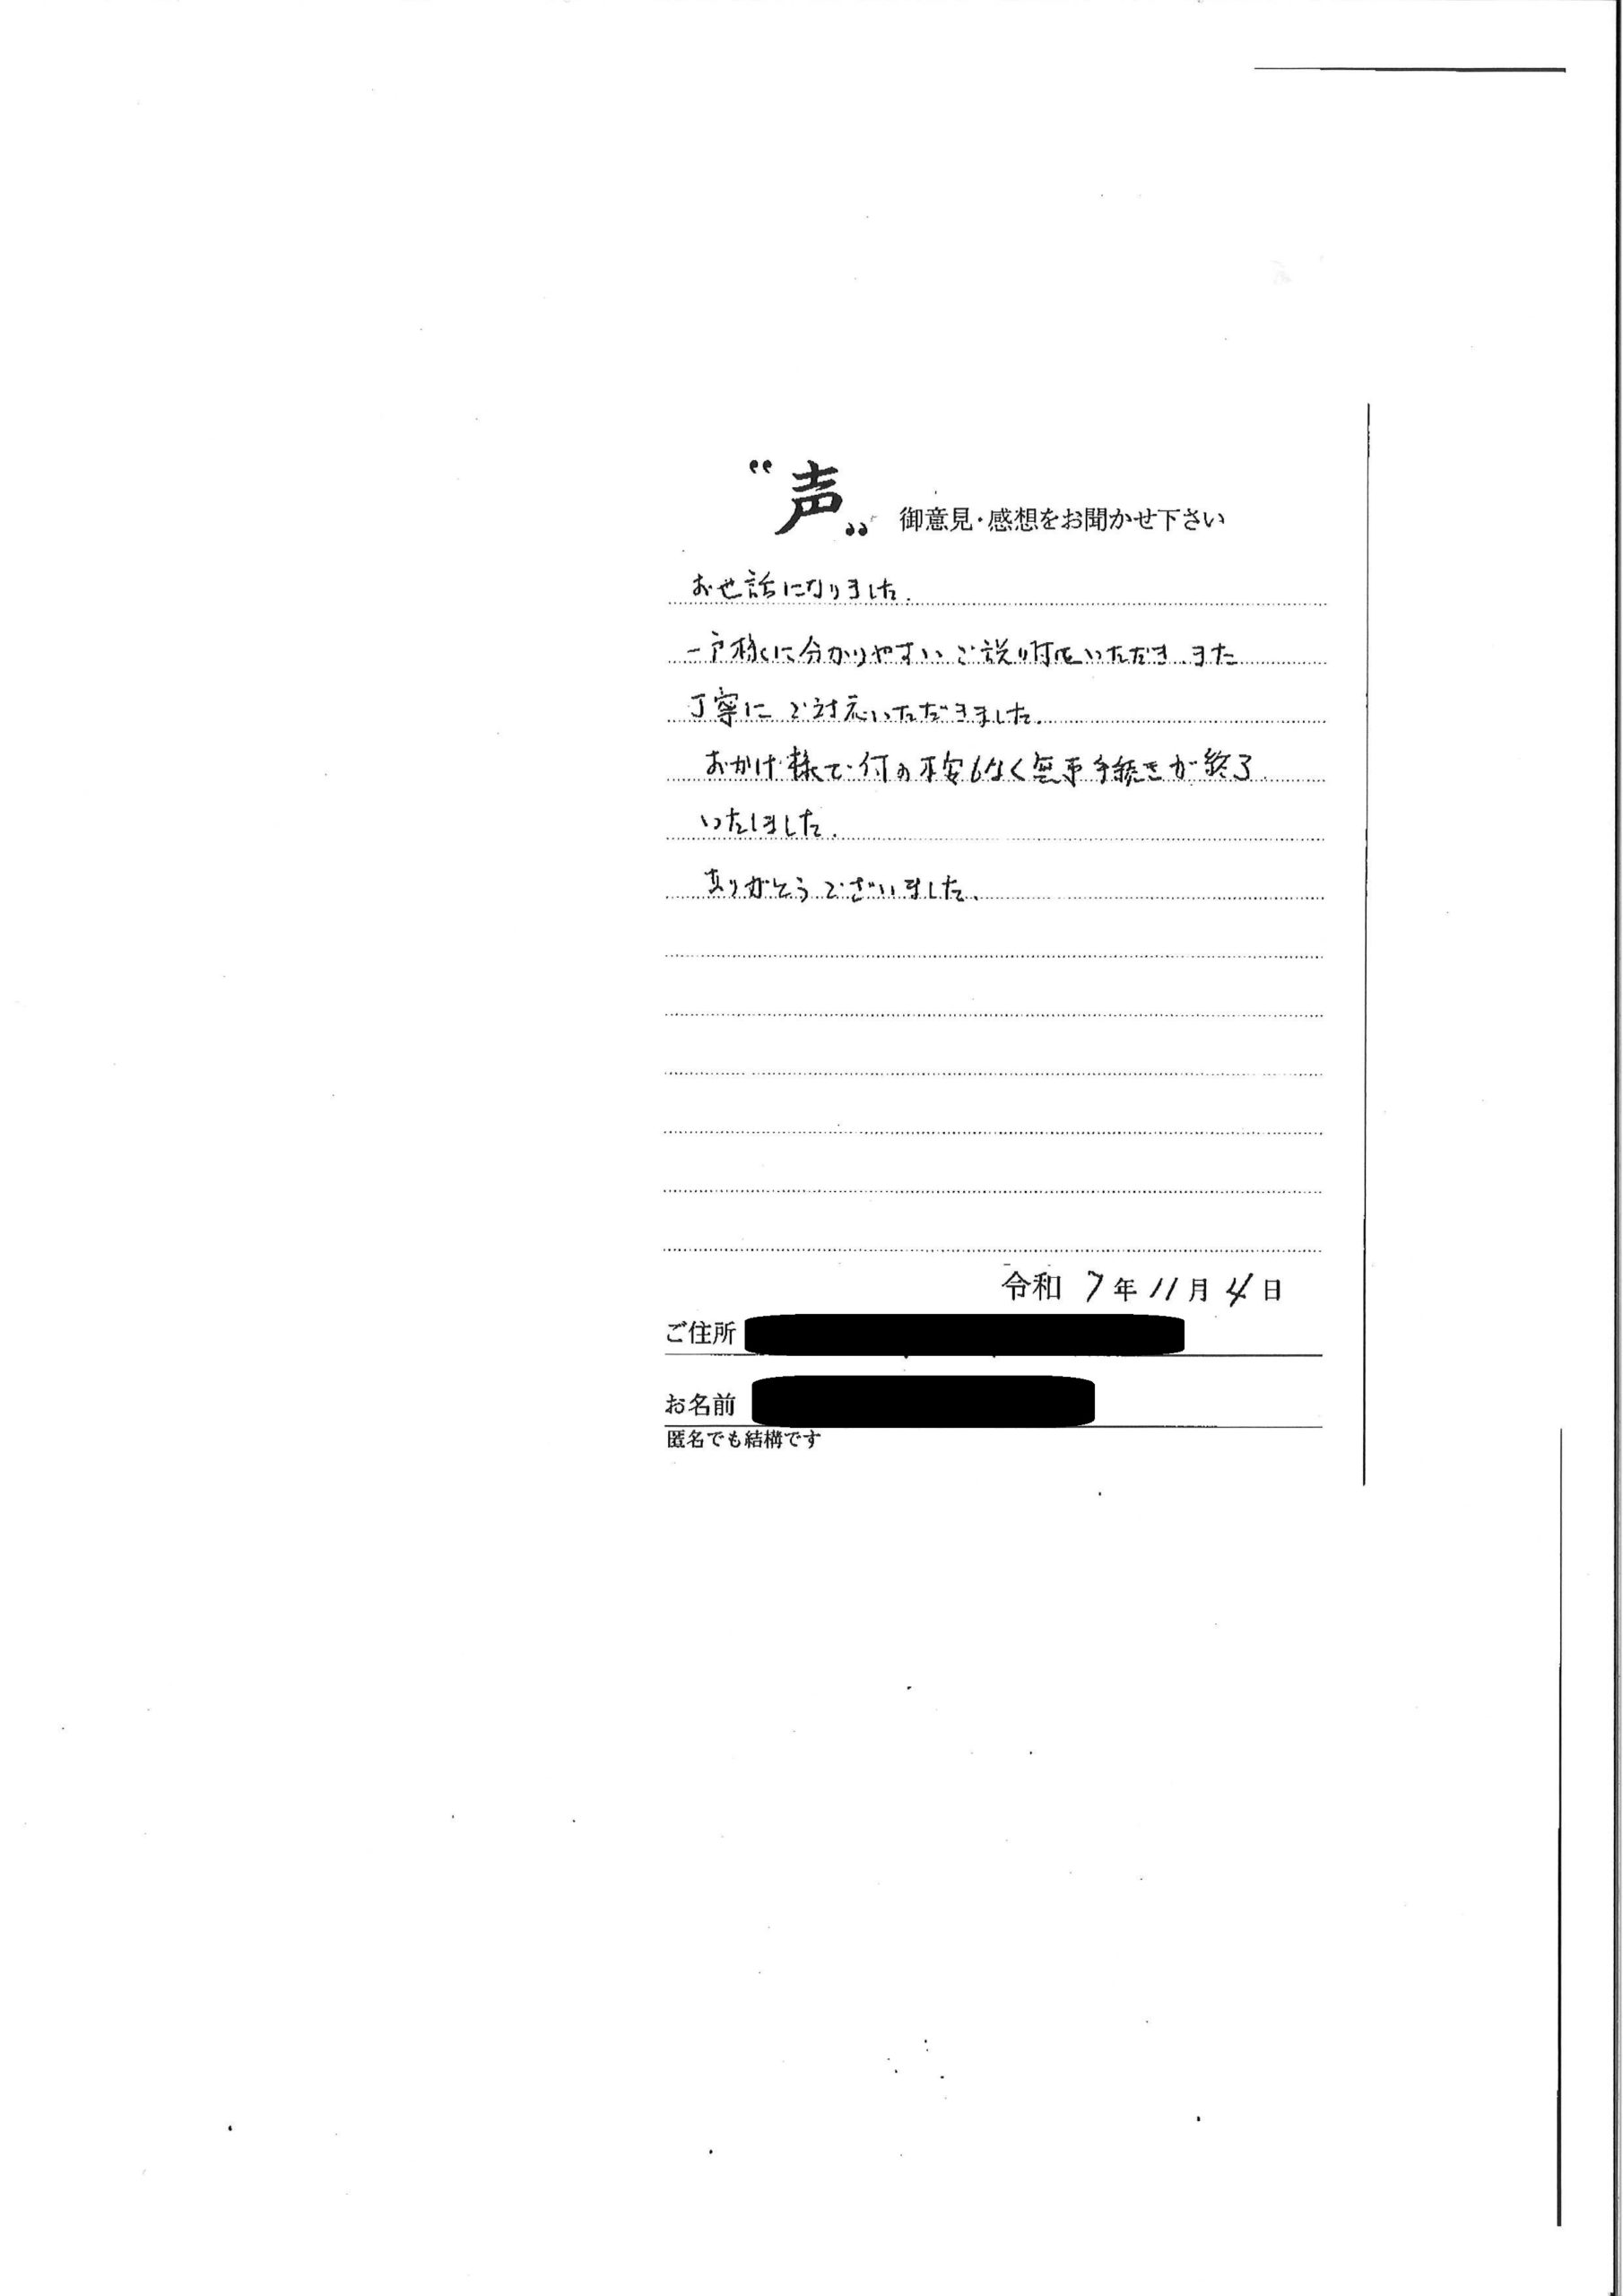 “声„ 御意見・感想をお聞かせ下さい
お世話になりました.
一戸様に分かりやすいご説明をいただき、また
丁寧にご対応いただきました.
おかげ様で何の不安もなく無事手続きが終了
いたしました.
ありがとうございました.
令和 7年 11月 4日
ご住所
お名前
匿名でも結構です